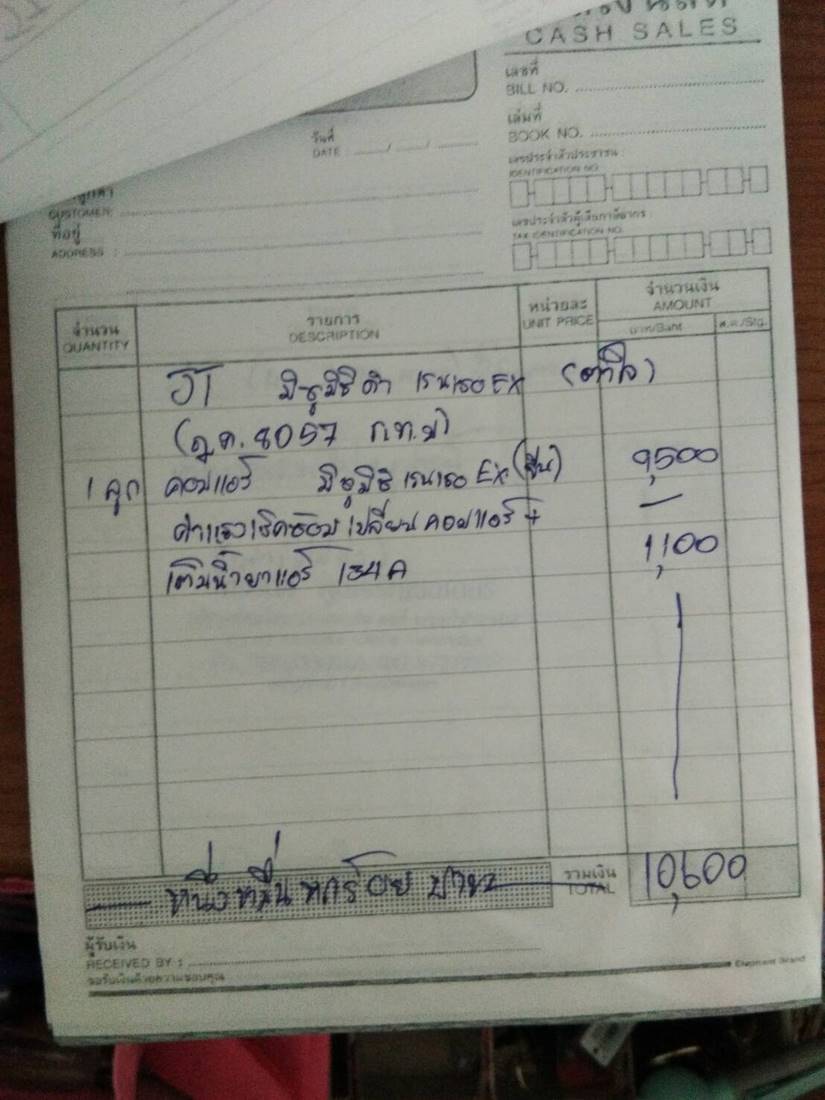 CASH SALES
เลขที่
BILL NO.
เล่มที่
BOOK NO.
วันที่
DATE : / /
เลขประจำตัวประชาชน :
IDENTIFICATION NO.
CUSTOMER:
ที่อยู่
ADDRESS :
เลขประจำตัวผู้เสียภาษีอากร :
TAX IDENTIFICATION NO.
จำนวน รายการ หน่วยละ จำนวนเงิน
QUANTITY DESCRIPTION UNIT PRICE AMOUNT
บาท/Baht ส.ต./Stg.
มิซูมิชิ ดำ เรนเธอ EX
(ฎค. 8057 ก.ท.ม)
1 ลูก คอมแอร์ มิซูมิชิ เรนเธอ EX 9,500
ค่าแรงเช็คซ่อม เปลี่ยนคอมแอร์ + —
เติมน้ำยาแอร์ 134A 1,100
หนึ่งหมื่นหกร้อย บาท รวมเงิน 10,600
TOTAL
ผู้รับเงิน
RECEIVED BY :
ขอรับเงินด้วยความขอบคุณ
Elephant Brand